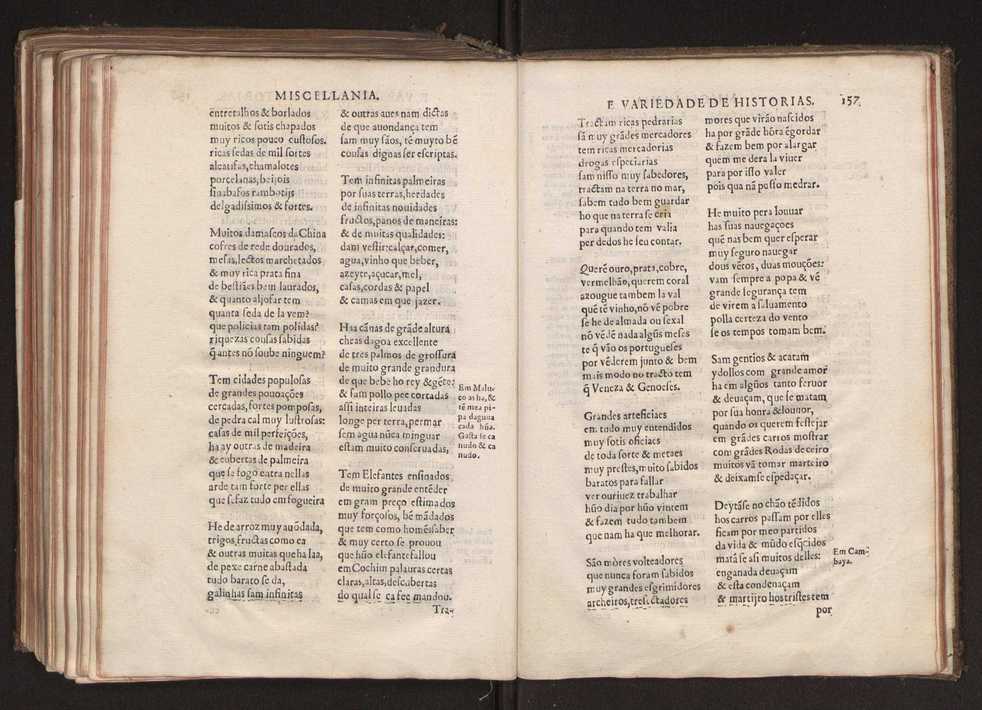 MISCELLANIA.
entretalhos & borlados
muitos & sotis chapados
muy ricos pouco custosos.
ricas sedas de mil sortes
alcatifas, chamalotes
porcelanas, beijois
sinabafos rambotijs
delgadissimos & fortes.
Muitos damascos da China
cofres de rede dourados,
mesas, lectos marchetados
& muy rica prata fina
de bestiães bem laurados,
& quanto aljofar tem
quanta seda de la vem?
que policias tam polidas?
riquezas cousas sabidas
q̃ antes nõ soube ninguem?
Tem cidades populosas
de grandes pouoações
cercadas, fortes pomposas,
de pedra cal muy lustrosas:
casas de mil perfeições,
ha ay outras de madeira
& cubertas de palmeira
que se fogo entra nellas
arde tam forte per ellas
que se faz tudo em fogueira
He de arroz muy auõdada,
trigos, fructas como ca
& outras muitas que ha laa,
de pexe carne abastada
tudo barato se da,
galinhas sam infinitas
& outras aues nam dictas
de que auondança tem
sam muy sãos, tẽ muyto bẽ
cousas dignas ser escriptas.
Tem infinitas palmeiras
por suas terras, herdades
de infinitas nouidades
fructos, panos de maneiras:
& de muitas qualidades:
dam vestir: calçar, comer,
agua, vinho que beber,
azeyte, açucar, mel,
casas, cordas & papel
& camas em que jazer.
Haa cãnas de grãde altura
cheas dagoa excellente
de tres palmos de grossura
de muito grande grandura
de que bebe ho rey & gẽte:
& sam pollo pee cortadas
assi inteiras leuadas
longe per terra, per mar
sem agua nũca minguar
estam muito conseruadas,
Em Malu-
co as ha, &
tẽ mea pi-
pa dagua
cada hũa.
Gasta se ca
nudo & ca
nudo.
Tem Elefantes ensinados
de muito grande entẽder
em gram preço estimados
muy forçosos, bẽ mãdados
que tem como homẽs saber
& muy certo se prouou
que hũo elefante fallou
em Cochim palauras certas
claras, altas, descubertas
do qual se ca fee mandou.
Tra-
E VARIEDADE DE HISTORIAS. 157.
Tractam ricas pedrarias
sã muy grãdes mercadores
tem ricas mercadorias
drogas especiarias
sam nisso muy sabedores,
tractam na terra no mar,
sabem tudo bem guardar
ho que na terra se cria
para quando tem valia
per dedos he seu contar.
Querẽ ouro, prata, cobre,
vermelhão, querem coral
azougue tambem la val
quẽ tẽ vinho, nõ vẽ pobre
se he de almada ou sexal
nõ vẽdẽ nada algũs meses
te q̃ vão os portugueses
por vẽderem junto & bem
mais modo no tracto tem
q̃ Veneza & Genoeses.
Grandes arteficiaes
em tudo muy entendidos
muy sotis oficiaes
de toda sorte & metaes
muy prestes, muito sabidos
baratos para fallar
ver ouriuez trabalhar
hũo dia por hũo vintem
& fazem tudo tambem
que nam ha que melhorar.
São mòres volteadores
que nunca foram sabidos
muy grandes esgrimidores
archeiros, tresectadores
mores que virão nascidos
ha por grãde hõra ẽgordar
& fazem bem por alargar
quem me dera la viuer
para por isso valer
pois qua nã posso medrar.
He muito pera louuar
has suas nauegaçoes
quẽ nas bem quer esperar
muy seguro nauegar
dous vẽtos, duas mouções:
vam sempre a popa & vẽ
grande segurança tem
de virem a saluamento
polla certeza do vento
se os tempos tomam bem.
Sam gentios & acatam
ydollos com grande amor
ha em algũos tanto feruor
& deuaçam, que se matam
por sua honra & louuor,
quando os querem festejar
em grãdes carros mostrar
com grãdes Rodas de ceiro
muitos vã tomar marteiro
& deixamse espedaçar.
Deytãse no chão tẽdidos
hos carros passam por elles
ficam por meo partidos
da vida & mũdo esq̃cidos
matã se asi muitos delles:
enganada deuaçam
& esta condenaçam
& martijro hos tristes tem
Em Cam-
baya.
por